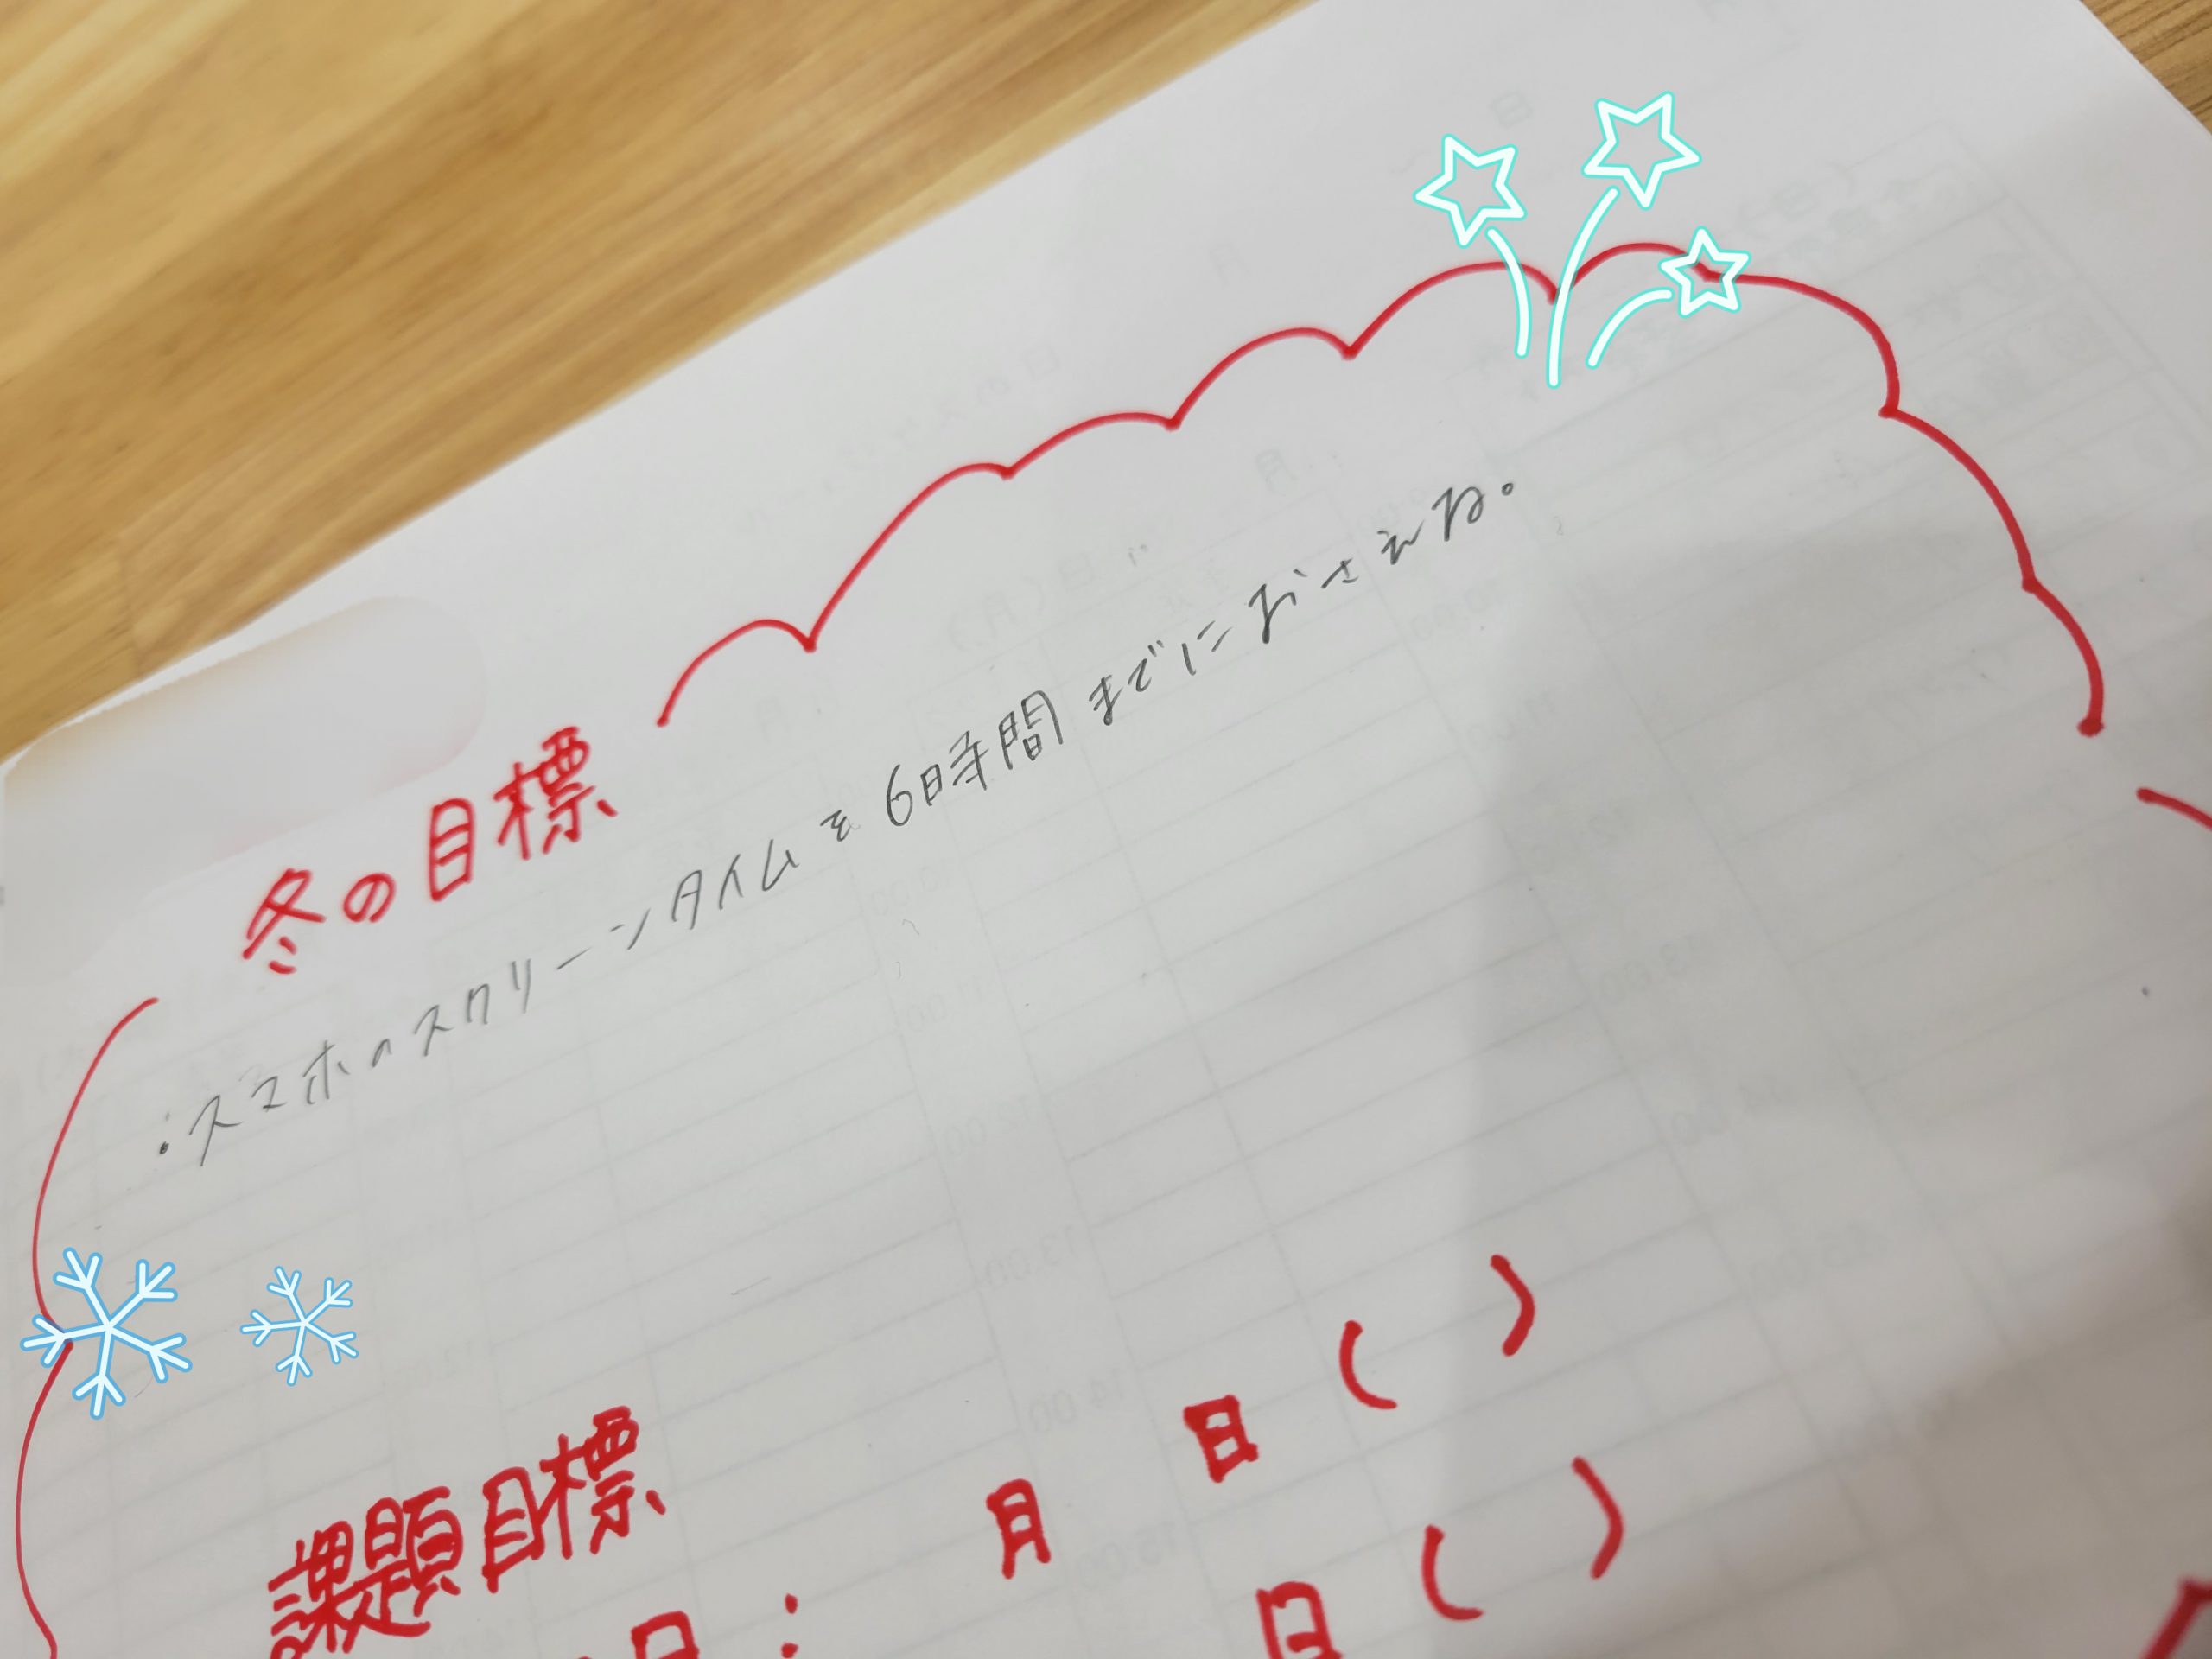 冬の目標
:スマホのスクリーンタイムを6時間までにおさえる。
課題目標
月 日 ( )
日: 日 ( )